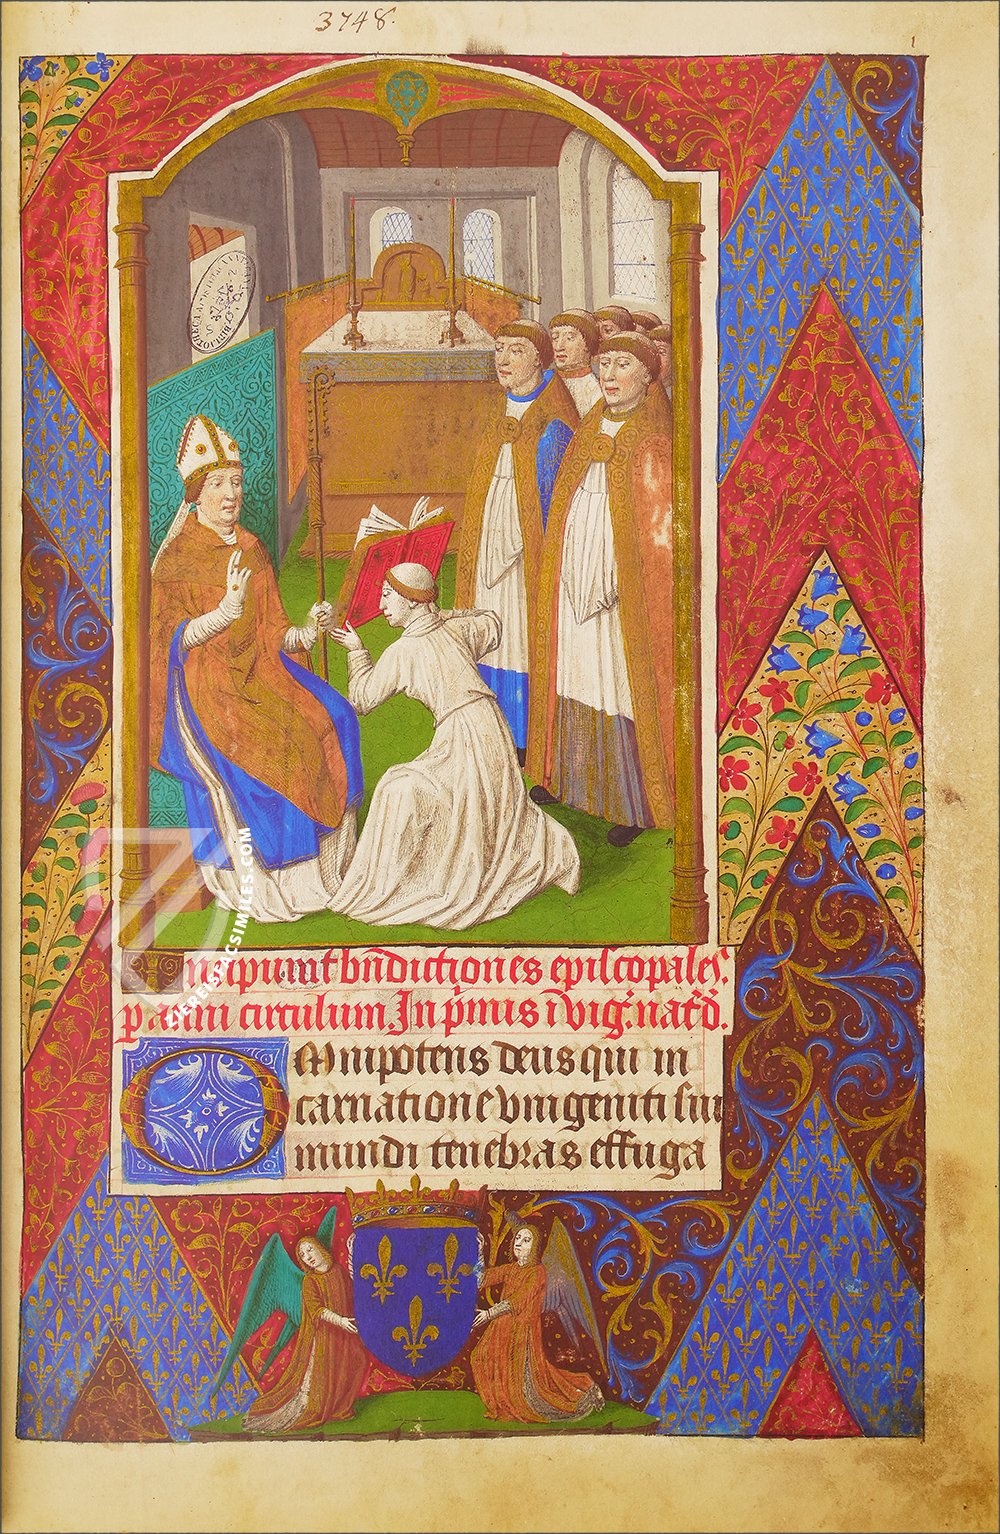 3748.
1
Incipiunt bn̄dictiones episcopales
per anni circulum. In p̄mis ī vig. nat. d.
OMnipotens deus qui in
carnatione vnigeniti sui
mundi tenebras effuga
VERBISFACSIMILES.COM